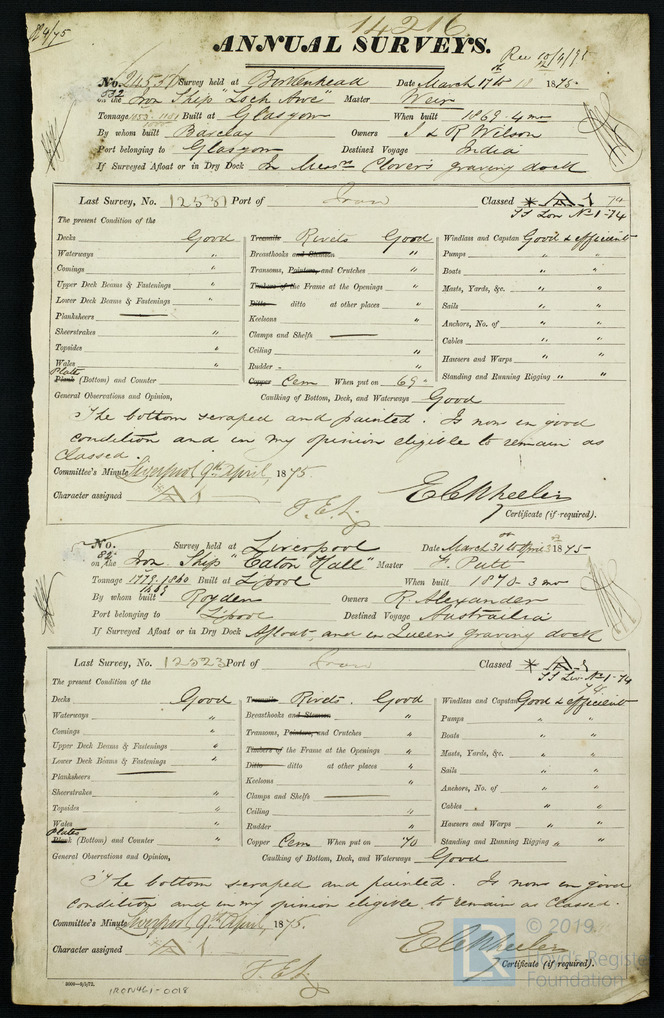 14216
ANNUAL SURVEYS.
No. 24537 Survey held at Birkenhead Date March 17 to 18 1875
532 on the Iron Ship "Loch Awe" Master Weir
Tonnage 1053 1101 Built at Glasgow When built 1869.4 mo
By whom built Barclay Owners J & R Wilson
Port belonging to Glasgow Destined Voyage India
If Surveyed Afloat or in Dry Dock In Messrs Clover's graving dock
Last Survey, No. 12531 Port of Iron Classed A 1 74
SS Lon No 1-74
The present Condition of the
Decks Good Treenails Rivets Good Windlass and Capstan Good & efficient
Waterways " Breasthooks and Stemson " Pumps " "
Comings " Transoms, Pointers, and Crutches " Boats " "
Upper Deck Beams & Fastenings " Timbers of the Frame at the Openings " Masts, Yards, &c. " "
Lower Deck Beams & Fastenings " Ditto ditto at other places " Sails " "
Planksheers Keelsons " Anchors, No. of " "
Sheerstrakes " Clamps and Shelfs Cables " "
Topsides " Ceiling " Hawsers and Warps " "
Wales " Rudder " Standing and Running Rigging " "
Plates
Plank (Bottom) and Counter " Copper Cem When put on 69
General Observations and Opinion, Caulking of Bottom, Deck, and Waterways Good
The bottom scraped and painted. Is now in good
condition and in my opinion eligible to remain as
classed.
Committee's Minute Liverpool 9th April, 1875.
Character assigned A 1
E C Wheeler
Certificate (if required).
No. Survey held at Liverpool Date March 31 to April 3 1875
84 on the Iron Ship "Eaton Hall" Master J. Putt
Tonnage 1779. 1860 Built at Lipool When built 1870-3 mo
By whom built Royden Owners R. Alexander
Port belonging to Lipool Destined Voyage Austrailia
If Surveyed Afloat or in Dry Dock Afloat, and in Queen's graving dock
Last Survey, No. 12523 Port of Iron Classed A 1
SS Liv No 1-74
74
The present Condition of the
Decks Good Treenails Rivets. Good Windlass and Capstan Good & efficient
Waterways " Breasthooks and Stemson " Pumps " "
Comings " Transoms, Pointers, and Crutches " Boats " "
Upper Deck Beams & Fastenings " Timbers of the Frame at the Openings " Masts, Yards, &c. " "
Lower Deck Beams & Fastenings " Ditto ditto at other places " Sails " "
Planksheers Keelsons " Anchors, No. of " "
Sheerstrakes " Clamps and Shelfs Cables " "
Topsides " Ceiling " Hawsers and Warps " "
Wales " Rudder " Standing and Running Rigging " "
Plates
Plank (Bottom) and Counter " Copper Cem When put on 70
General Observations and Opinion, Caulking of Bottom, Deck, and Waterways Good
The bottom scraped and painted. Is now in good
condition and in my opinion eligible to remain as classed.
Committee's Minute Liverpool 9th April, 1875.
Character assigned A 1
E C Wheeler
Certificate (if required).
IRON461-0018
© 2019.
LR Lloyd's Register
Foundation